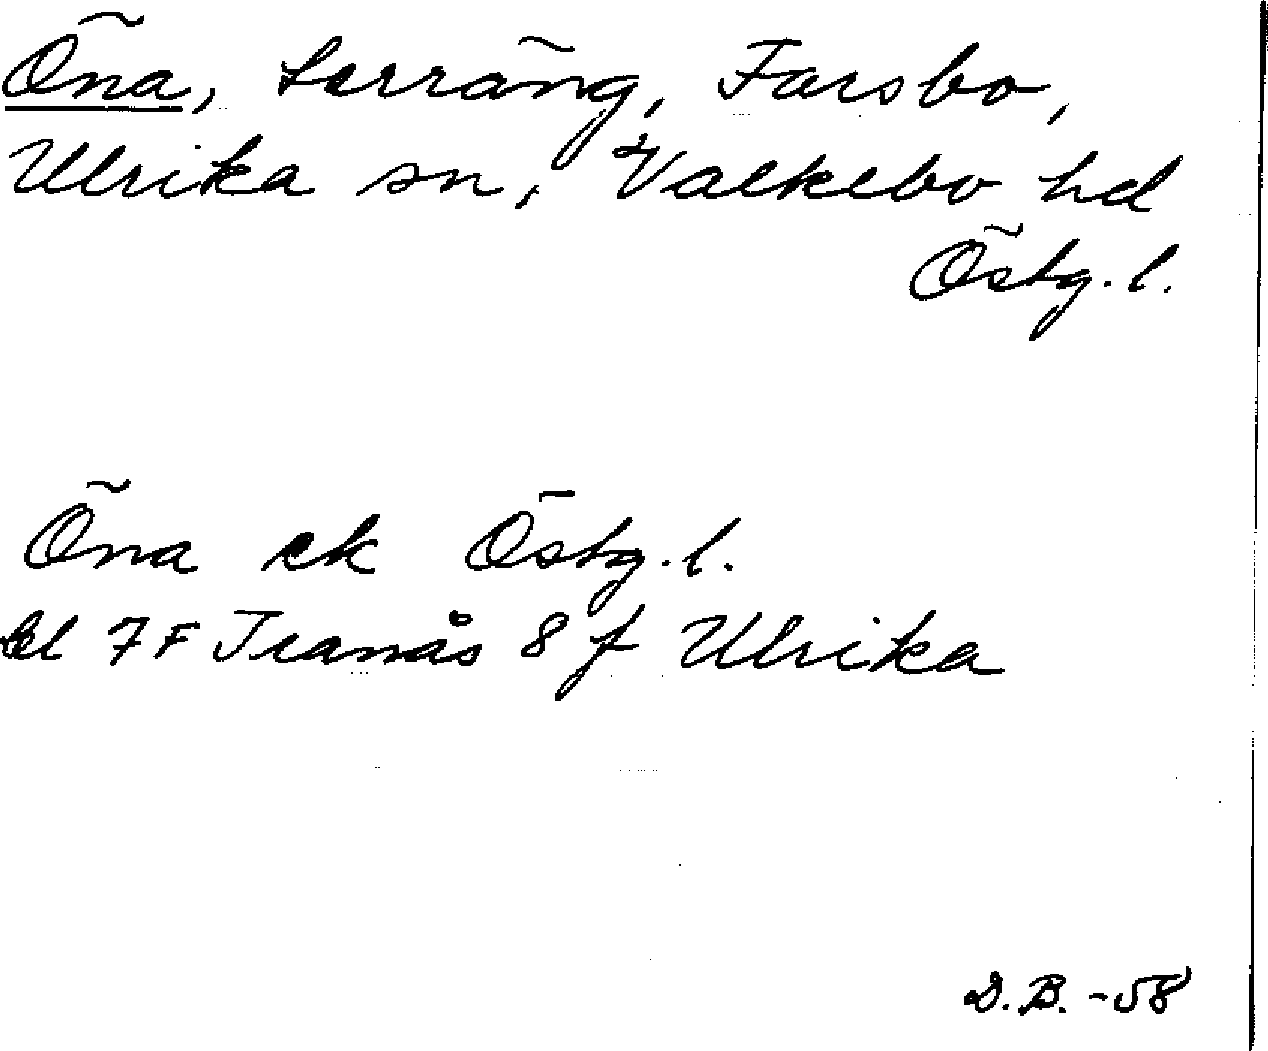 Öna, terräng, Farsbo,
Ulrika sn, Valkebo hd
Östg. l.
Öna ek Östg. l.
bl 7F Tranås 8 f Ulrika
D.B. -58